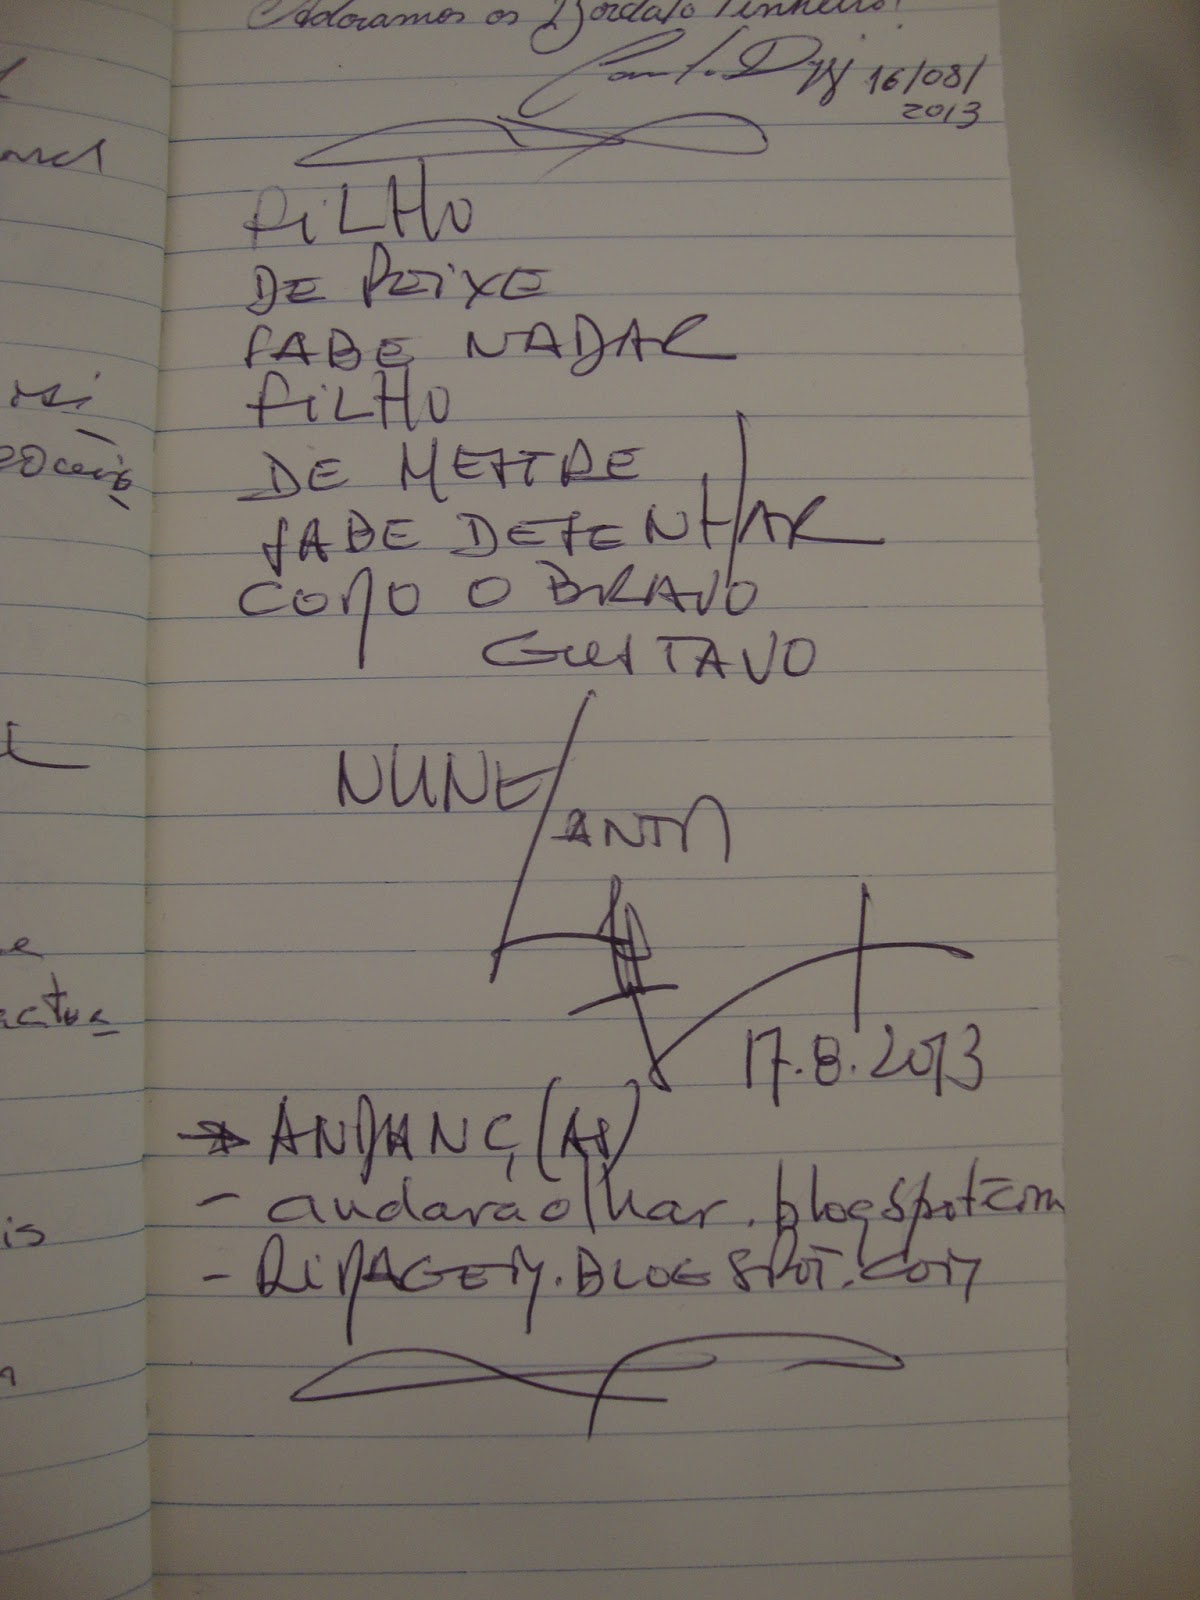 Adoramos os Bordalo Pinheiro!
16/08/
2013
FILHO
DE PEIXE
SABE NADAR
FILHO
DE MESTRE
SABE DESENHAR
COMO O BRAVO
GUSTAVO
NUNE
17.8.2013
→ ANDANÇ(AS)
- andaraolhar.blogspot.com
- RIMAGEM.BLOGSPOT.COM